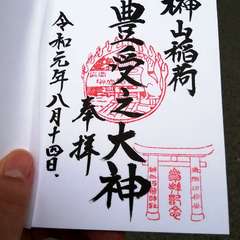 榊山稲荷
豊受之大神
奉拝
令和元年八月十四日